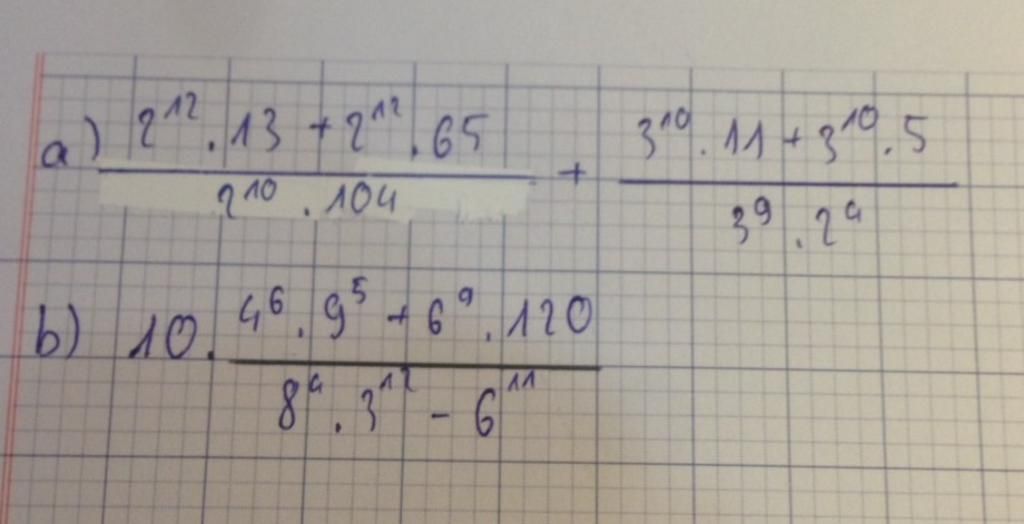 a) 2¹² . 13 + 2¹² . 65 + 3¹⁰ . 11 + 3¹⁰ . 5
2¹⁰ . 104 3⁹ . 2⁴
b) 10 . 4⁶ . 9⁵ + 6⁹ . 120
8⁴ . 3¹² - 6¹¹